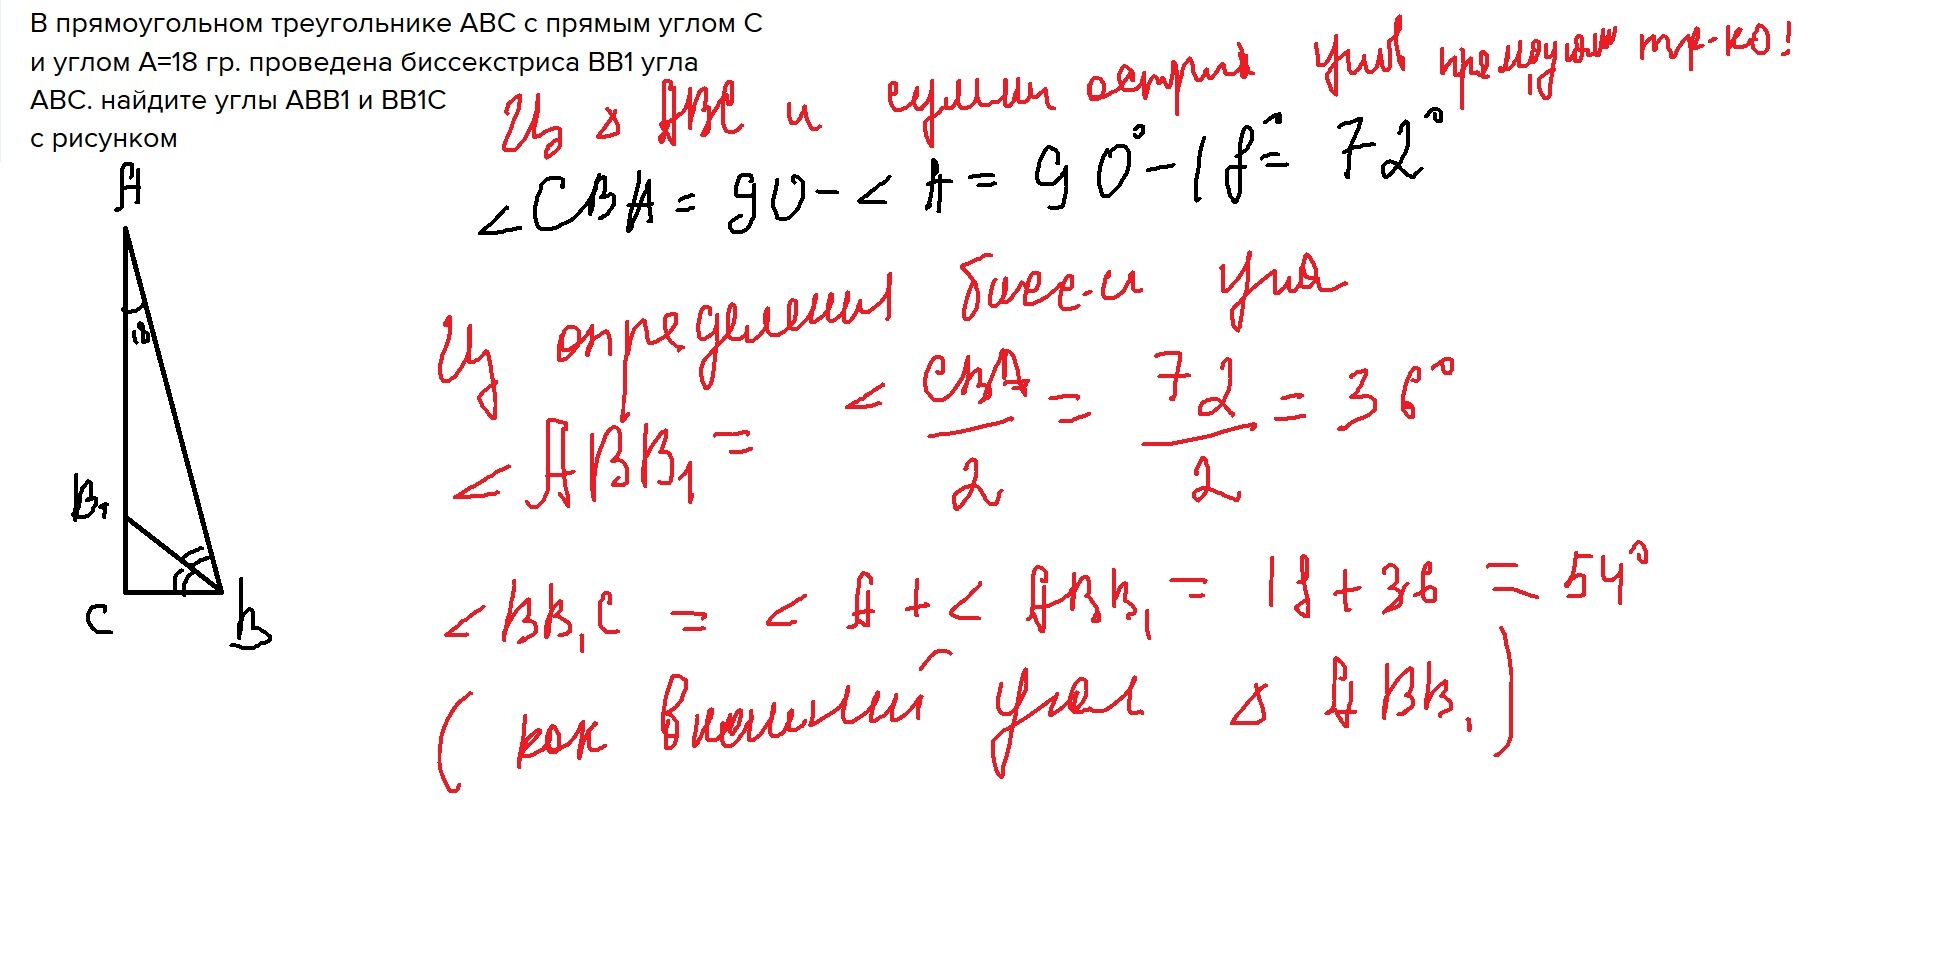 В прямоугольном треугольнике ABC с прямым углом C
и углом A=18 гр. проведена биссекстриса BB1 угла
ABC. найдите углы ABB1 и BB1C
с рисунком
A
18
B₁
C
B
Из △ ABC и суммы острых углов прямоугол тр-ко!
<CBA = 90 - < A = 90° - 18° = 72°
Из определения бисс-и угла
<ABB₁ = <CBA/2 = 72/2 = 36°
<BB₁C = < A + < ABB₁ = 18 + 36 = 54°
(как внешний угол △ ABB₁)